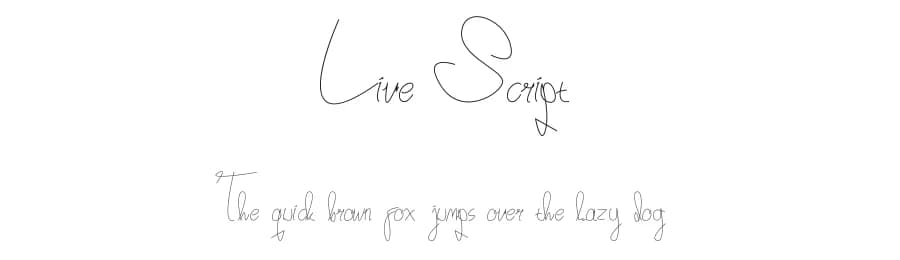 Live Script
The quick brown fox jumps over the lazy dog